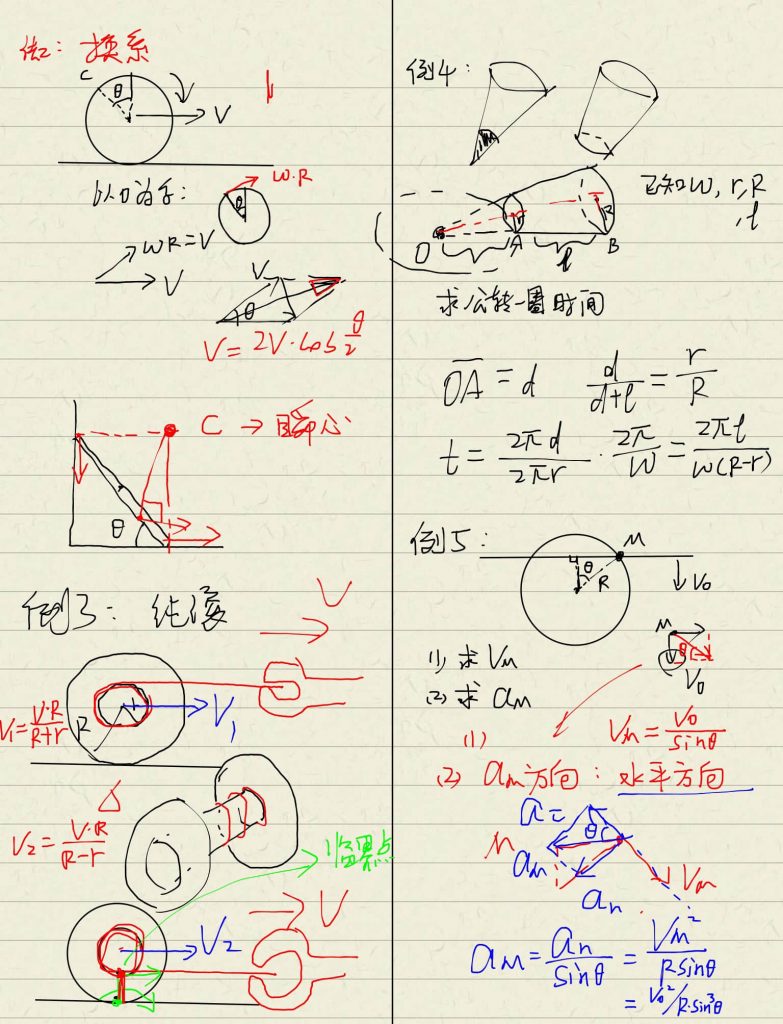 法2：换系
C
θ
V
以O为系：
ω·R
θ
ωR=V
V
V
θ
V=2V·cos θ/2
C → 瞬心
θ
例3：纯滚
V
V₁=V·R/R+r
R
V₁
V₂=V·R/R-r
临界点
V
V₂
例4：
已知ω, r, R
, l
O
A
l
B
r
R
求公转一圈时间
OA=d d/d+l=r/R
t=2πd/2πr·2π/ω=2πl/ω(R-r)
例5：
M
θ
R
V₀
M
θ
V₀
(1) 求V_M
(2) 求a_M
(1) V_M=V₀/sinθ
(2) a_M方向：水平方向
a_τ
θ
M
a_M
V_M
a_n
a_M=a_n/sinθ=V_M²/Rsinθ
=V₀²/R·sin³θ